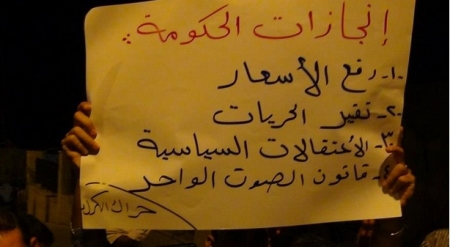 إنجازات الحكومة :
١- رفع الأسعار
٢- تقير الحريات
٣- الأعتقالات السياسية
قانون الصوت الواحد
حراك الكرك